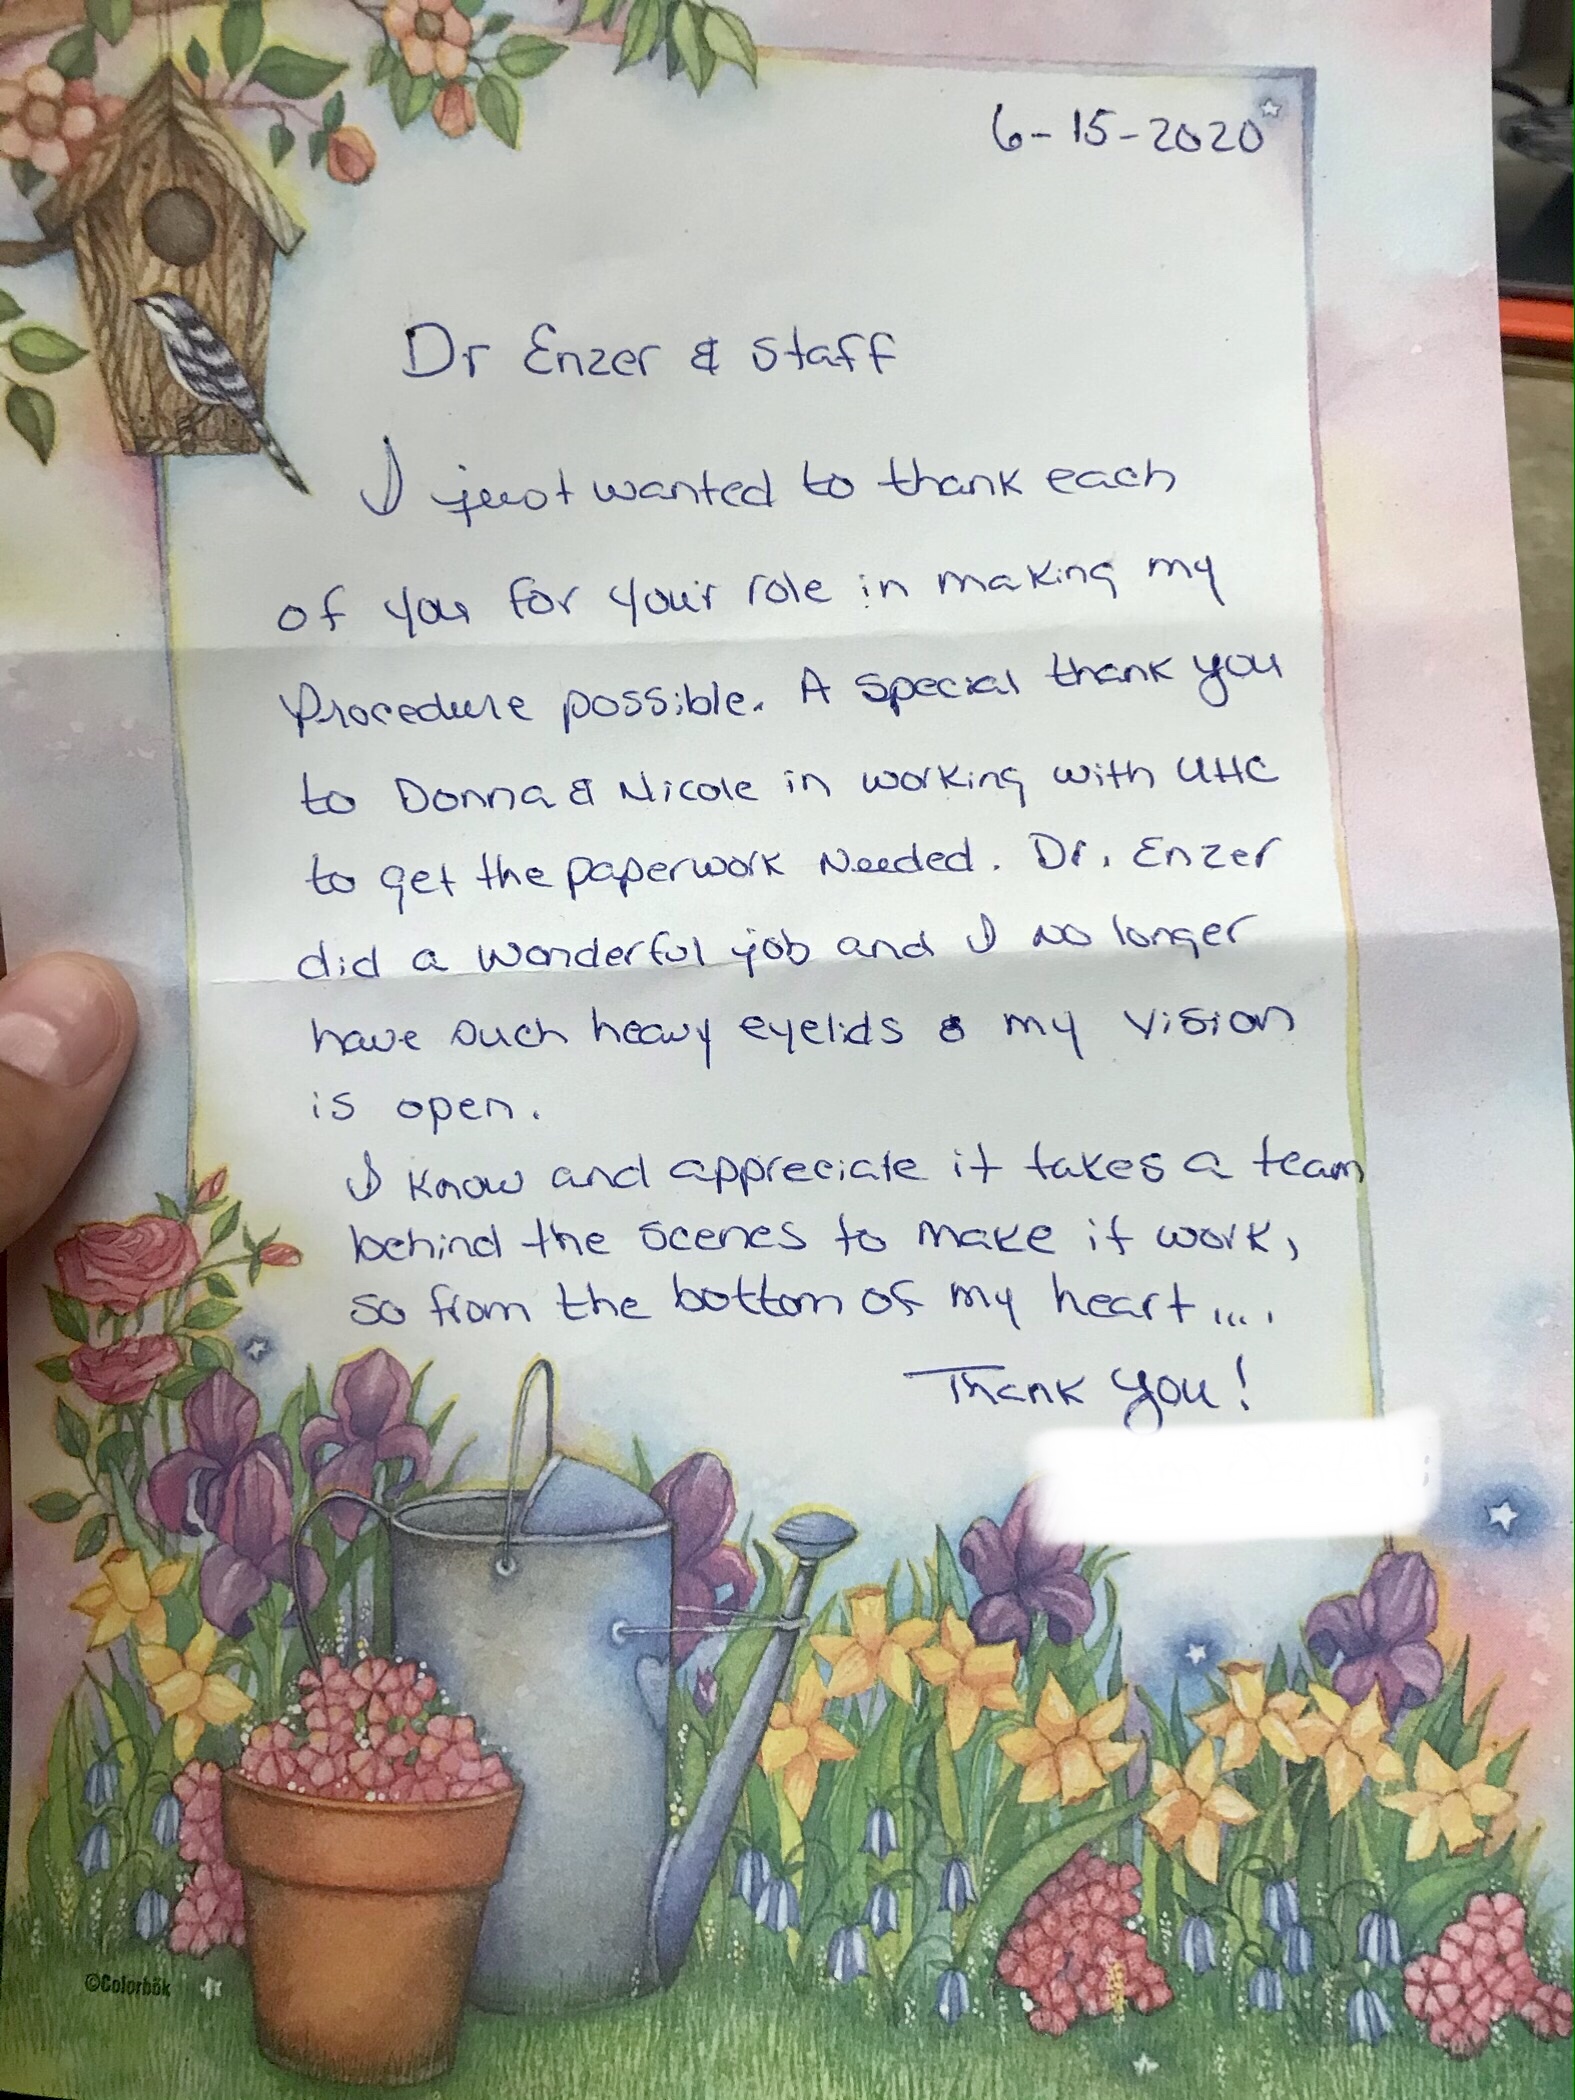 6-15-2020
Dr Enzer & Staff
I just wanted to thank each
of you for your role in making my
Procedure possible. A special thank you
to Donna & Nicole in working with UHC
to get the paperwork Needed. Dr. Enzer
did a wonderful job and I no longer
have such heavy eyelids & my vision
is open.
I know and appreciate it takes a team
behind the scenes to make it work,
so from the bottom of my heart....
Thank you!
©Colorbök